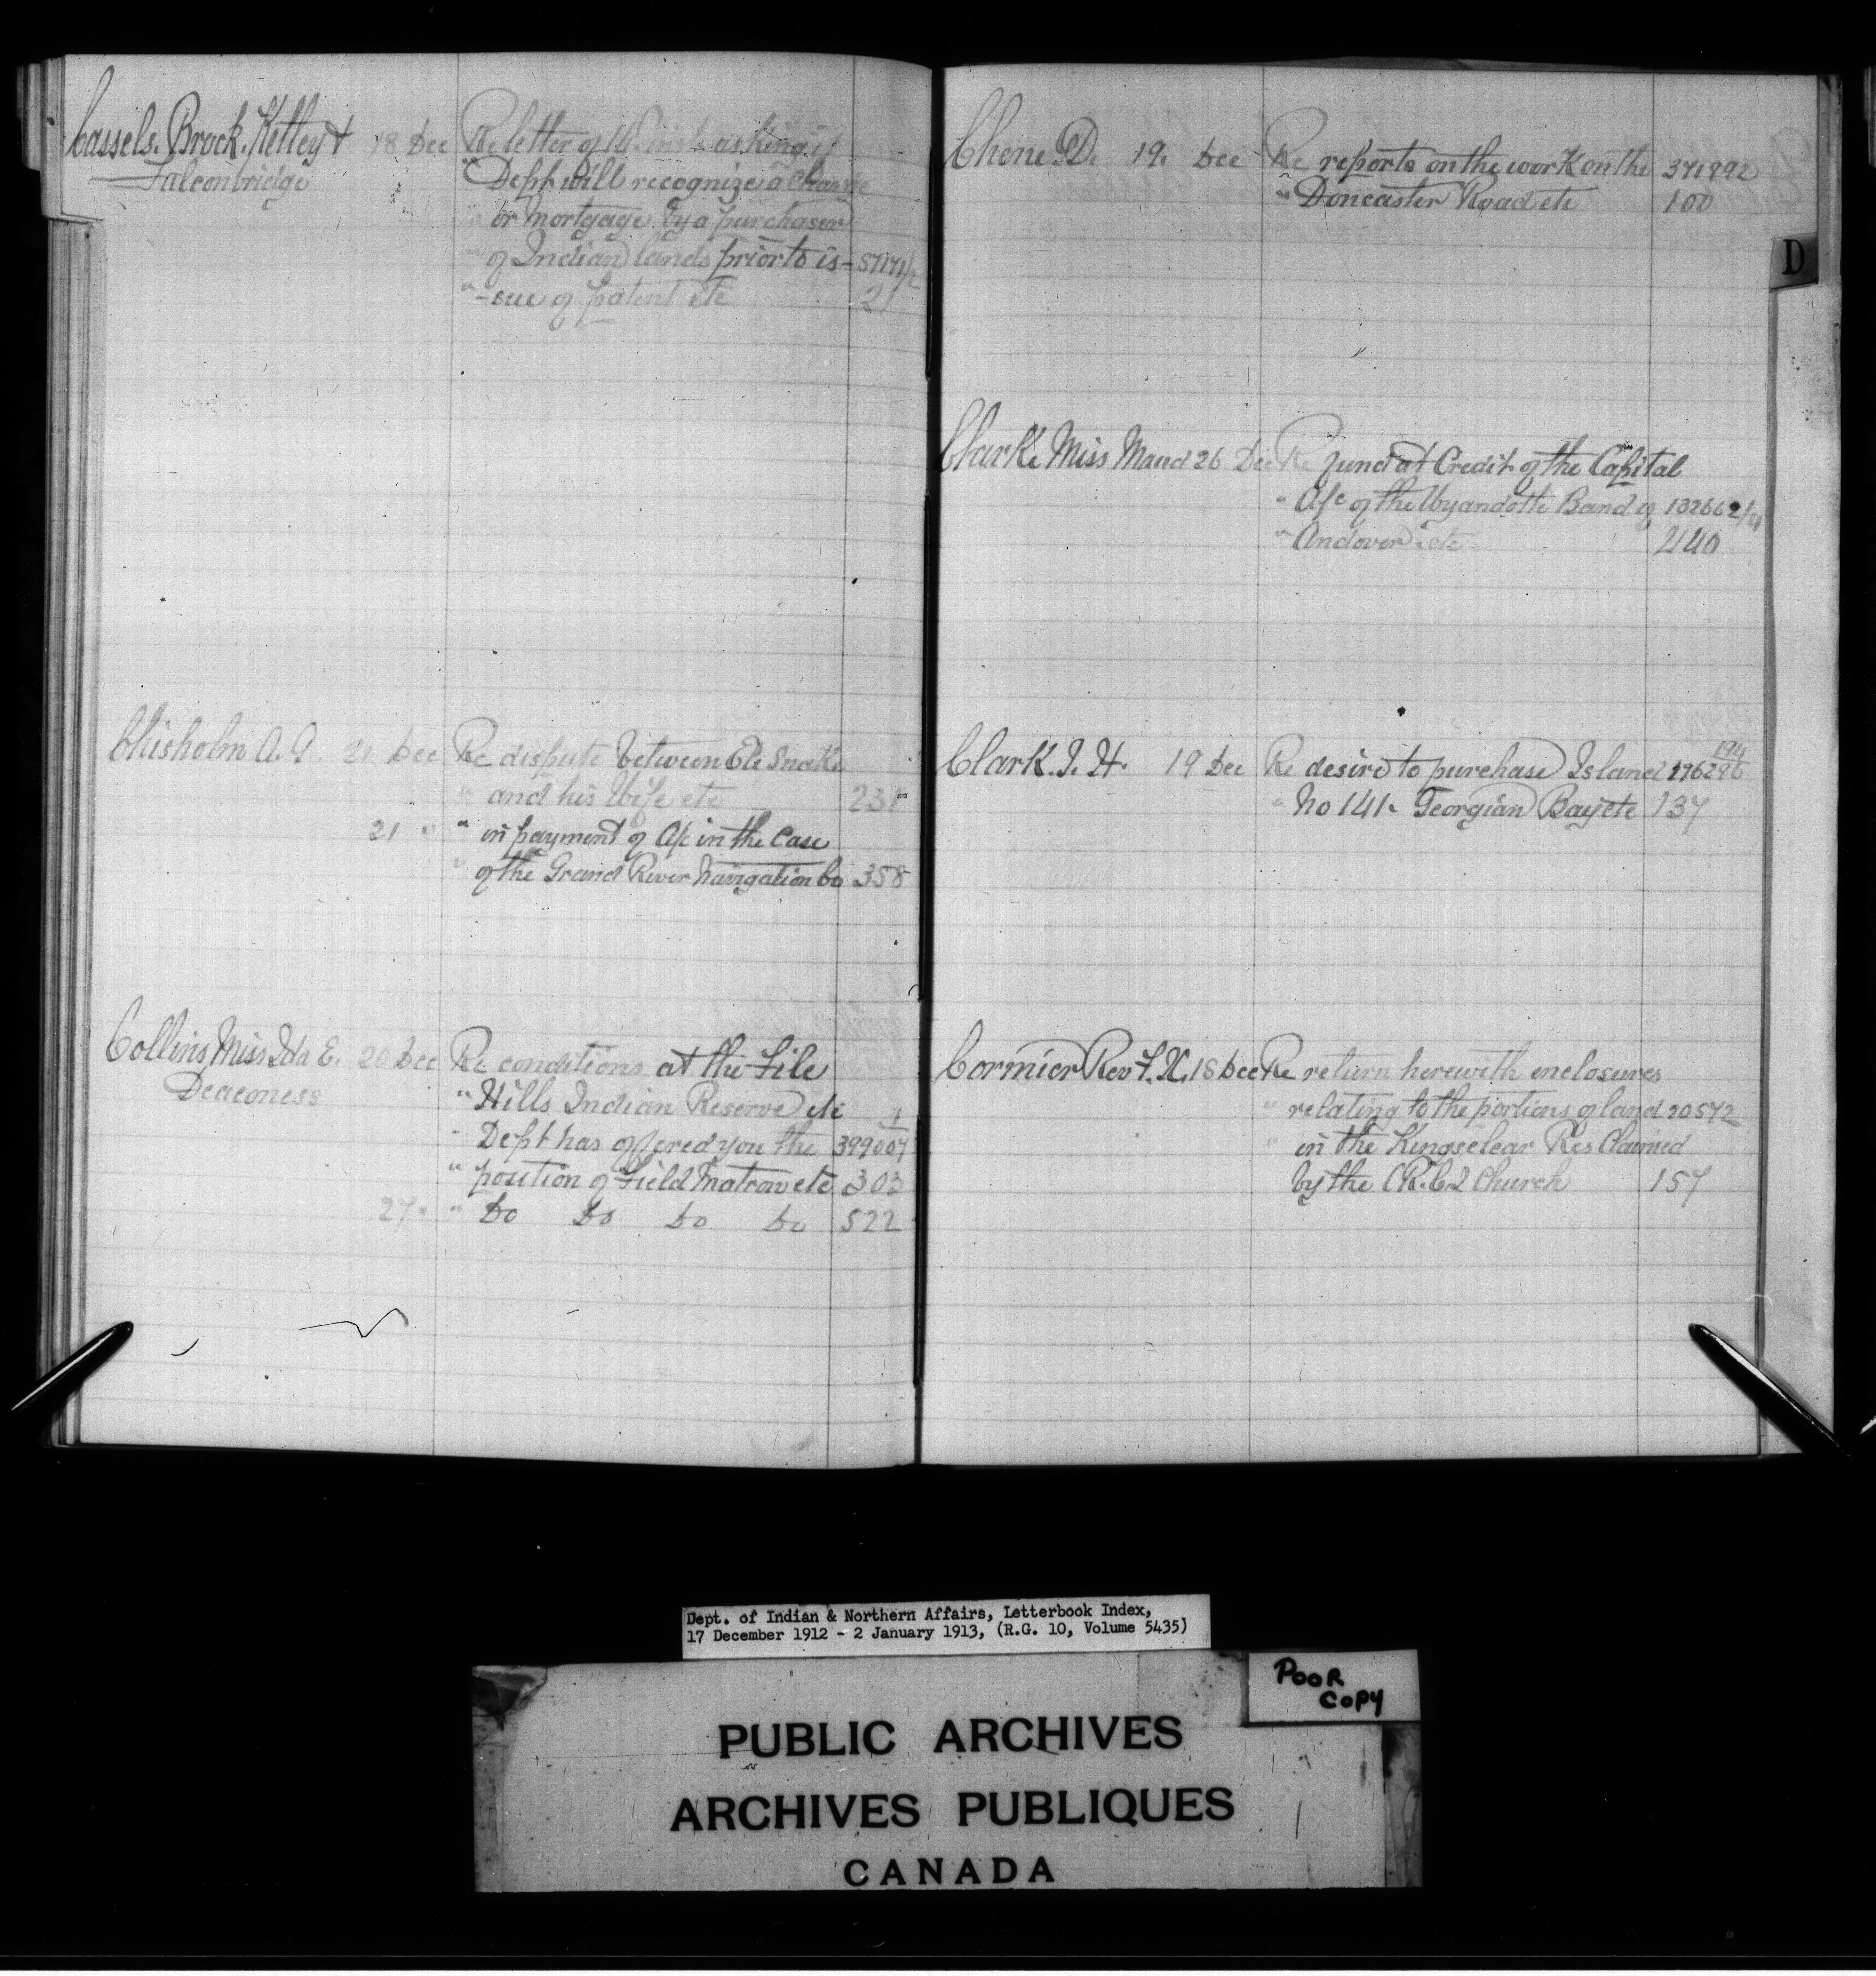 Cassels. Brock. Kelley & 18 Dec Re letter of 14 inst asking if
Falconbridge " Dept will recognize a Charge
" or mortgage by a purchaser
" of Indian lands prior to is- 57171/2
" -sue of patent etc 21
Chisholm A. G. 21 Dec Re dispute between Eli Snake
" and his Wife etc 231
21 " " in payment of A/c in the Case
" of the Grand River Navigation Co 358
Collins Miss Ida E. 20 Dec Re conditions at the File
Deaconess " Hills Indian Reserve etc 1
" Dept has offered you the 399004
" position of Field Matron etc 303
27 " " Do Do Do Do 522
Chene D. 19. Dec Re reports on the work on the 371892
" Doncaster Road etc 100
D
Clarke Miss Maud 26 Dec Re fund at Credit of the Capital
" A/c of the Wyandotte Band of 132662/4
" Andover etc 440
194
Clark. J. H. 19 Dec Re desire to purchase Island 196296
" No 141. Georgian Bay etc 137
Cormier Rev F. X. 18 Dec Re return herewith enclosures
" relating to the portions of land 20572
" in the Kingsclear Res Claimed
by the (R.C.) Church 157
Dept. of Indian & Northern Affairs, Letterbook Index,
17 December 1912 - 2 January 1913, (R.G. 10, Volume 5435)
POOR
COPY
PUBLIC ARCHIVES
ARCHIVES PUBLIQUES
CANADA